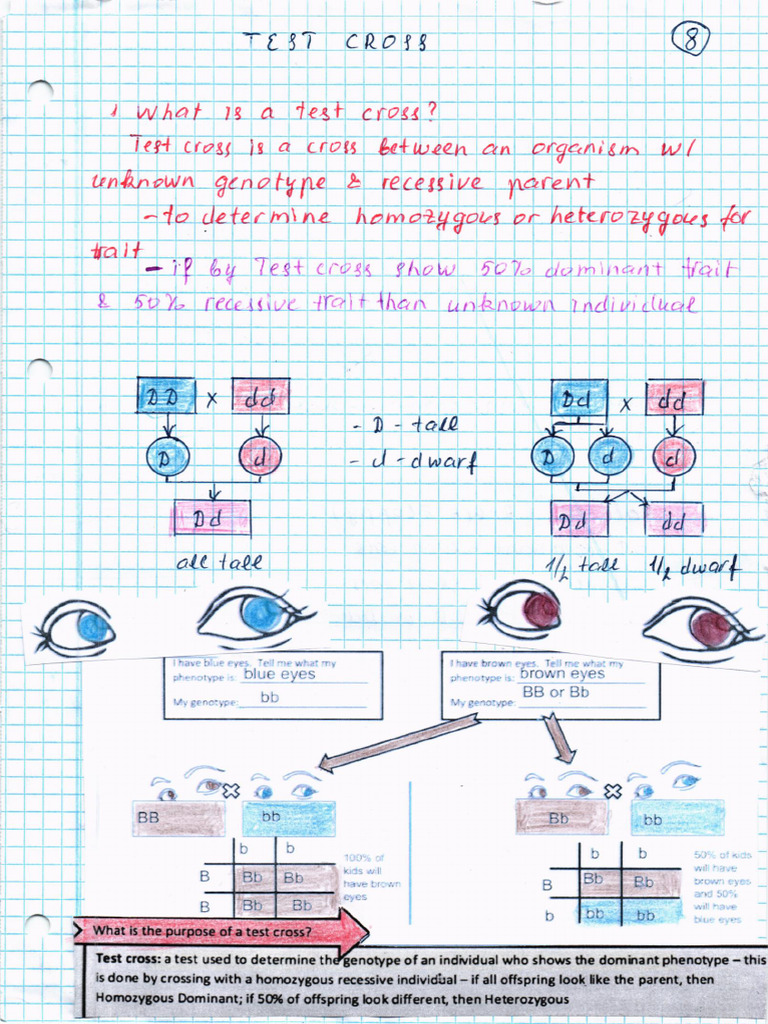 TEST CROSS
8
1 What is a test cross?
Test cross is a cross between an organism w/
unknown genotype & recessive parent
- to determine homozygous or heterozygous for
trait
- if by Test cross show 50% dominant trait
& 50% recessive trait than unknown individual
DD x dd
Dd x dd
- D - tall
- d - dwarf
D d
D d d
Dd
Dd dd
all tall
1/2 tall 1/2 dwarf
I have blue eyes. Tell me what my
phenotype is: blue eyes
My genotype: bb
I have brown eyes. Tell me what my
phenotype is: brown eyes
BB or Bb
My genotype:
BB bb
b b
B Bb Bb
B Bb Bb
100% of
kids will
have brown
eyes
Bb bb
b b
B Bb Bb
b bb bb
50% of kids
will have
brown eyes
and 50%
will have
blue eyes
What is the purpose of a test cross?
Test cross: a test used to determine the genotype of an individual who shows the dominant phenotype – this
is done by crossing with a homozygous recessive individual – if all offspring look like the parent, then
Homozygous Dominant; if 50% of offspring look different, then Heterozygous